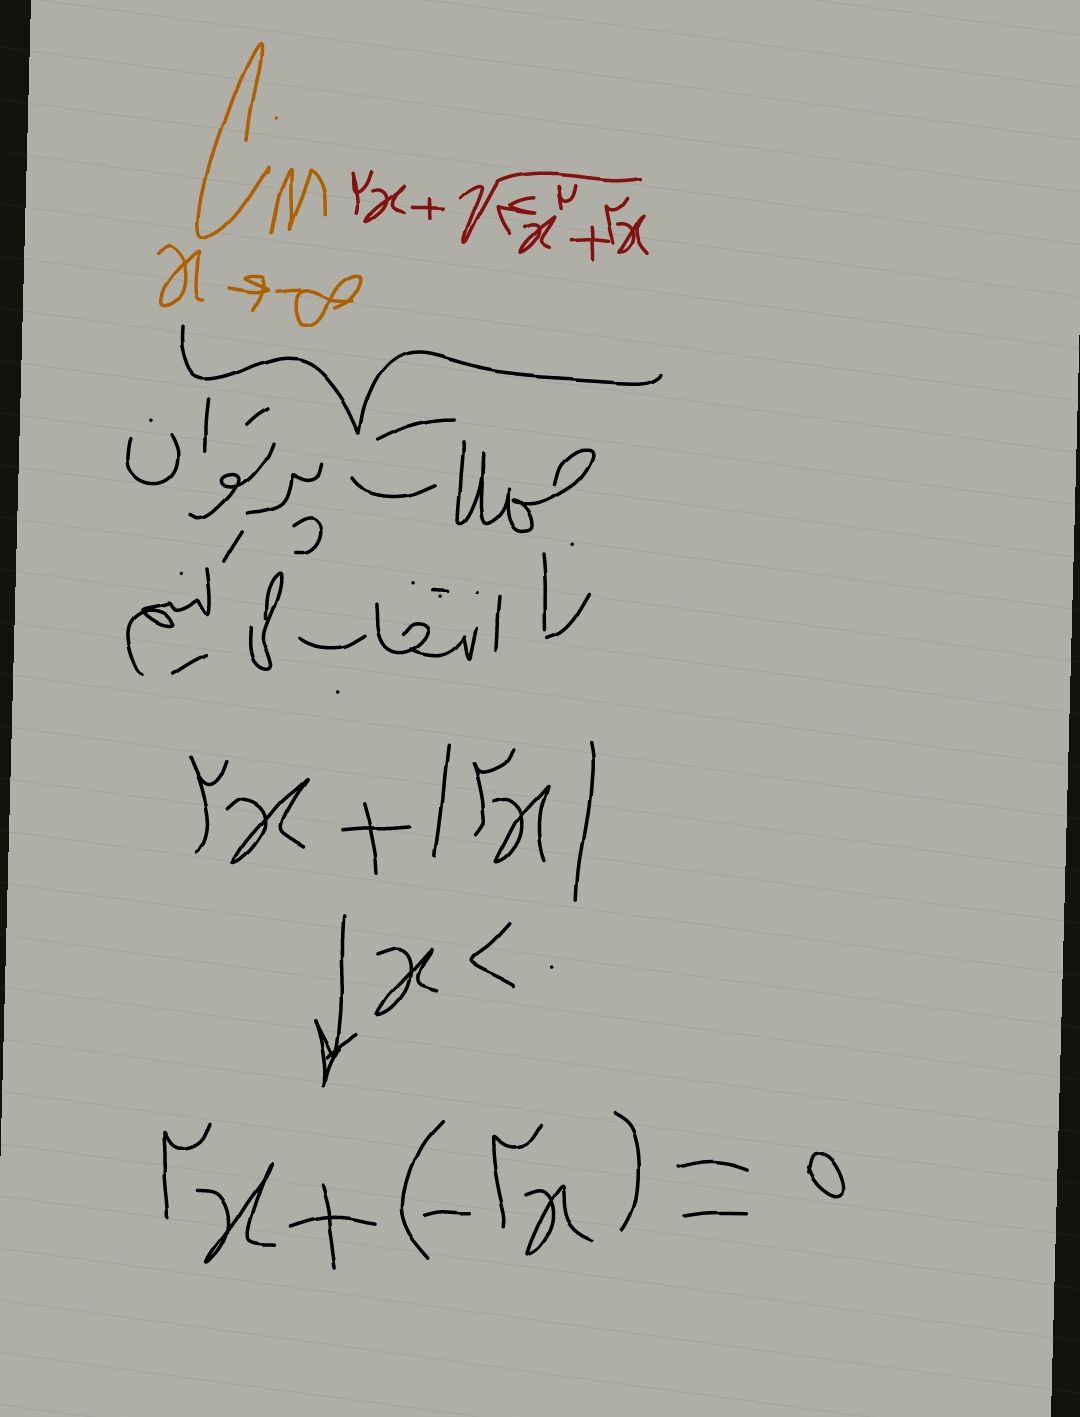 lim ۲x + √۴x^۲ + ۲x
x → -∞
جملات پرتوان
را انتخاب می کنیم
۲x + |۲x|
↓ x < ۰
۲x + (-۲x) = 0